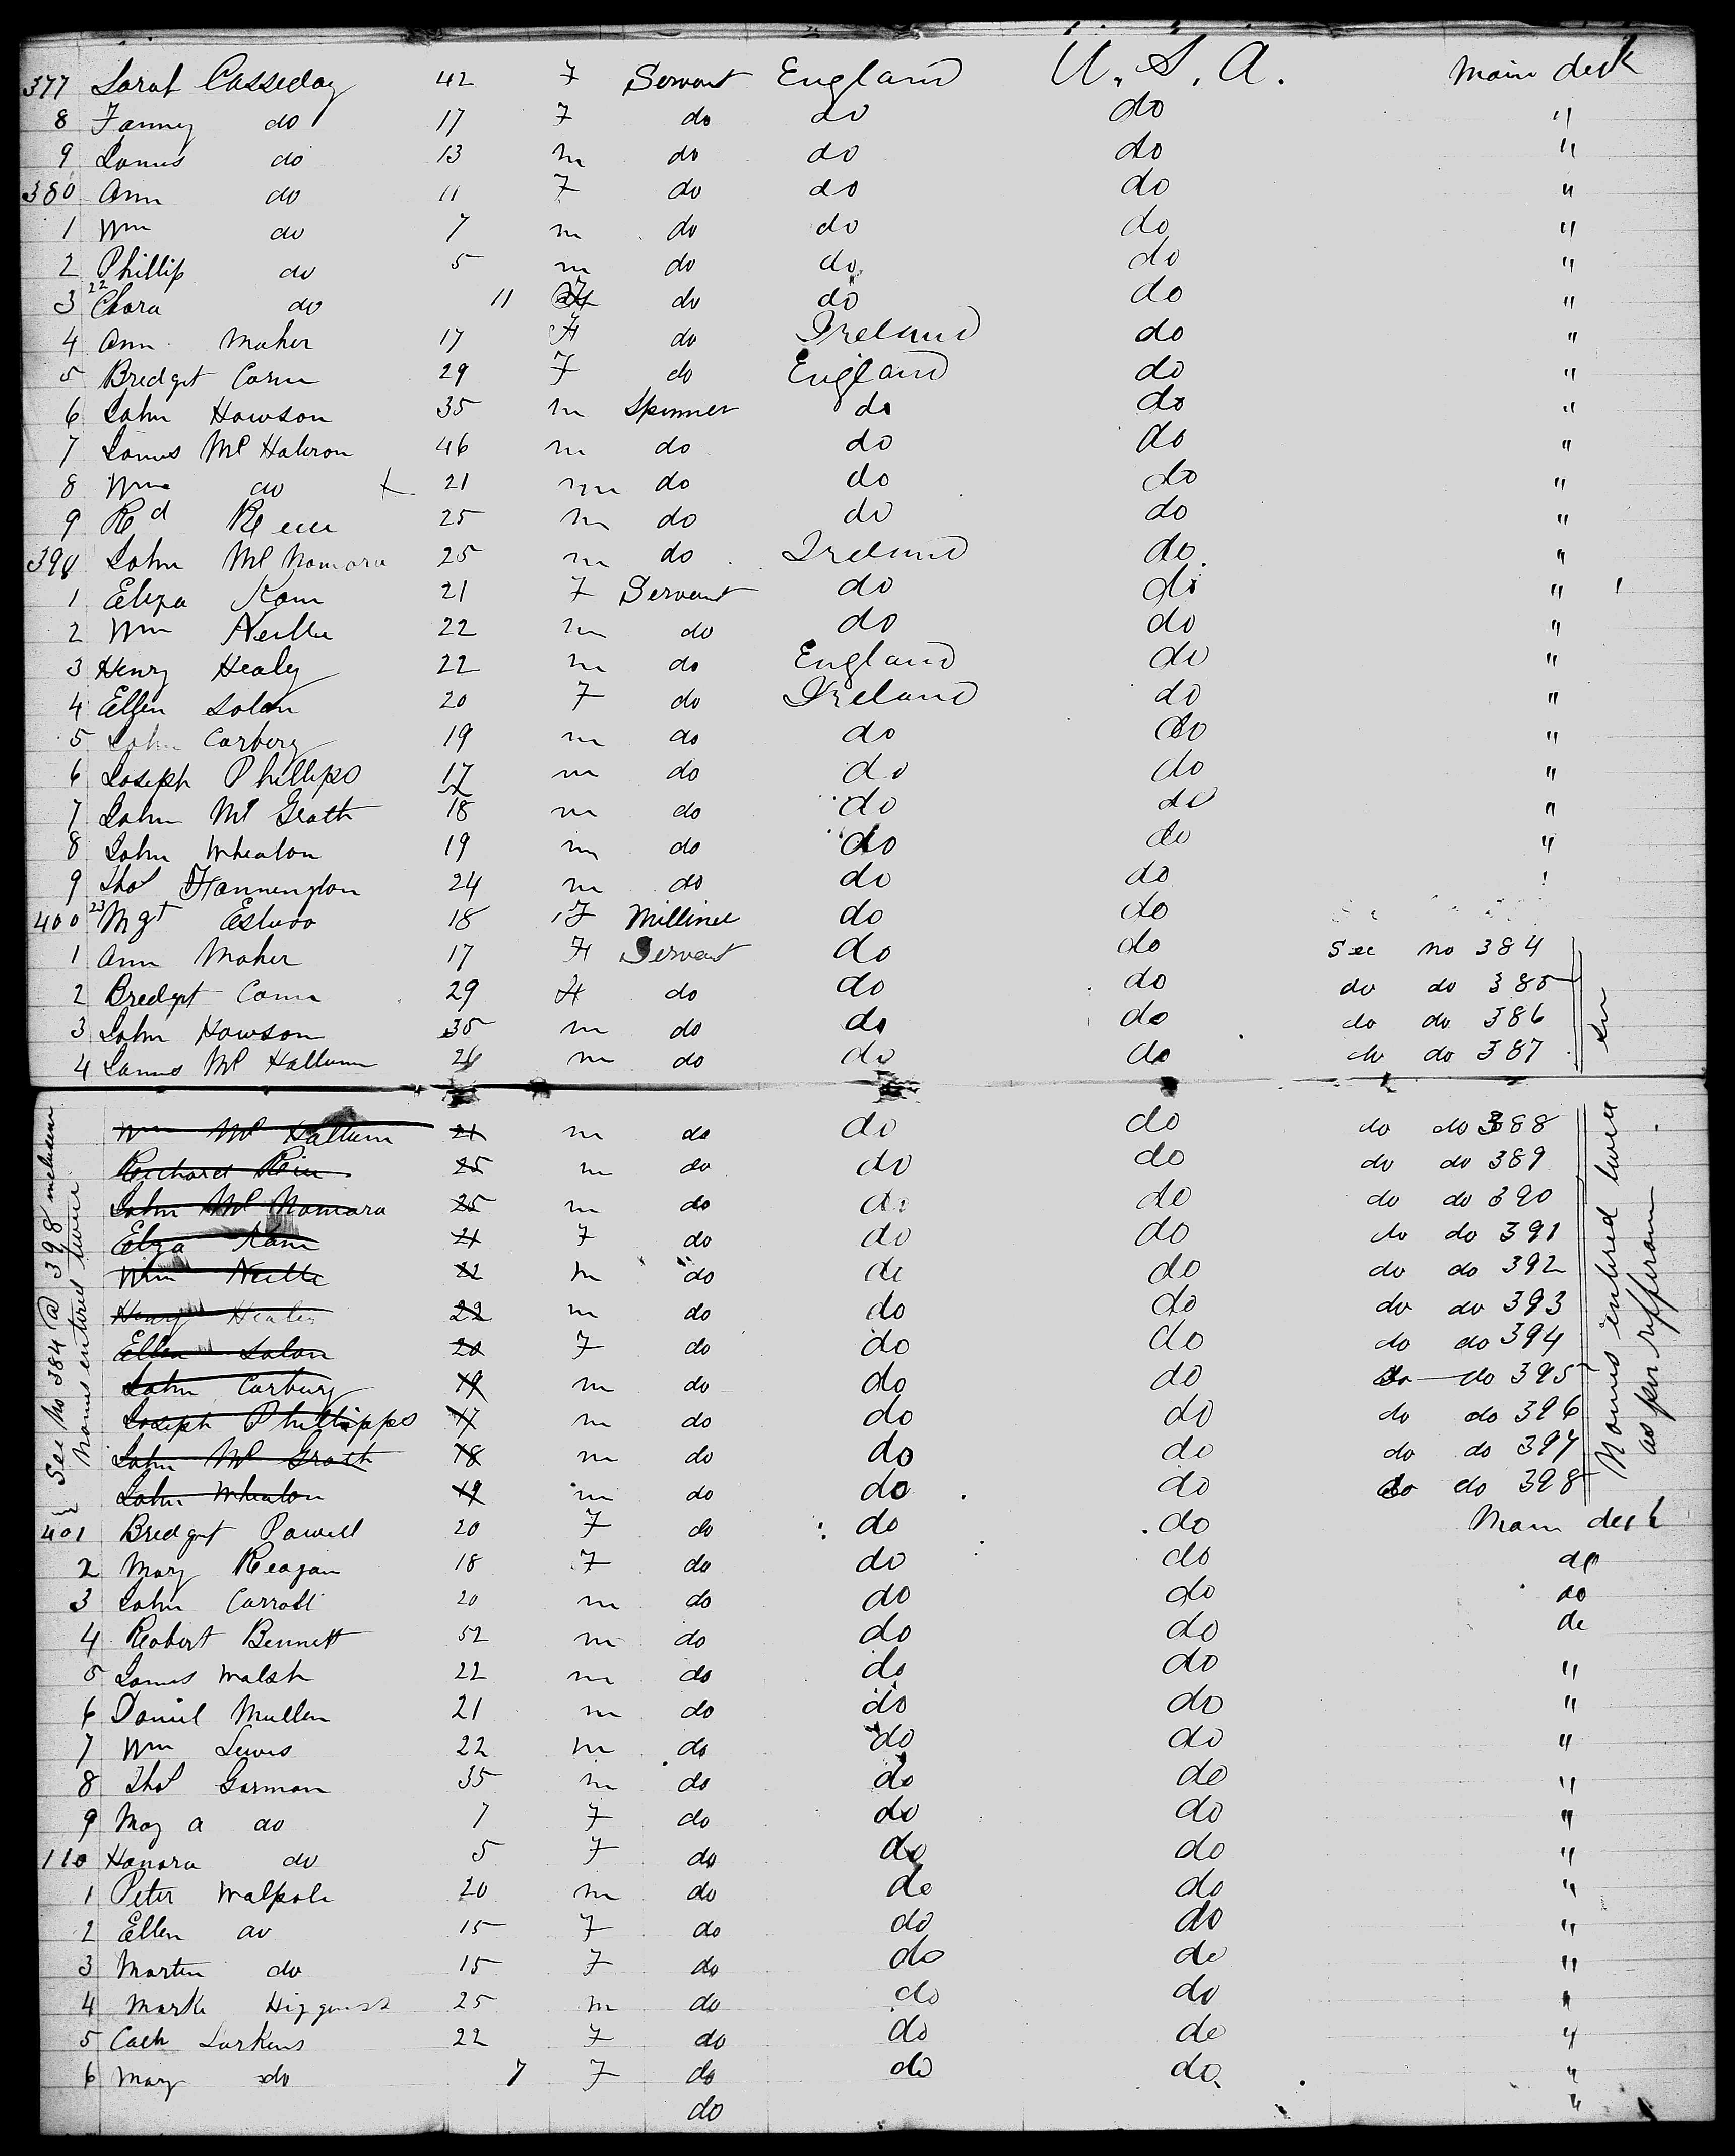 377 Sarah Casseday 42 F Servant England U.S.A. Main deck
8 Fanny do 17 F do do do "
9 James do 13 m do do do "
380 Ann do 11 F do do do "
1 Wm do 7 m do do do "
2 Phillip do 5 m do do do "
3 22 Clara do 11 F do do do "
4 Ann Maher 17 F do Ireland do "
5 Bredget 29 F do England do "
6 John Howson 35 m Spinner do do "
7 James Mc 46 m do do do "
8 Wm do 21 m do do do "
9 Rd 25 m do do do "
390 John Mc Namara 25 m do Ireland do "
1 Eliza Kam 21 F Servant do do "
2 Wm 22 m do do do "
3 Henry Healey 22 m do England do "
4 Ellen Solan 20 F do Ireland do "
5 John Carbery 19 m do do do "
6 Joseph Phillips 17 m do do do "
7 John Mc Grath 18 m do do do "
8 John Wheaton 19 m do do do "
9 Thos Hannington 24 m do do do
400 23 Mgt 18 F Milliner do do
1 Ann Maher 17 F Servant do do See No 384
2 Bredget 29 F do do do do do 385
3 John Howson 35 m do do do do do 386
4 James Mc Hallum m do do do do do 387
Wm Mc Hallum 21 m do do do do do 388
Richard 25 m do do do do do 389
John Mc Namara 25 m do do do do do 390
Eliza Kam 21 F do do do do do 391
Wm 22 m do do do do do 392
Henry Healey 22 m do do do do do 393
Ellen Solan 20 F do do do do do 394
John Carbury 19 m do do do do do 395
Joseph Phillipps 17 m do do do do do 396
John Mc Grath 18 m do do do do do 397
John Wheaton 19 m do do do do do 398
See No 384 @ 398 inclusive
Names entered twice
Names entered twice
as per
401 Bredget Powell 20 F do do do Main deck
2 Mary Reagan 18 F do do do do
3 John Carroll 20 m do do do do
4 Robert Bennett 52 m do do do do
5 James Walsh 22 m do do do "
6 Daniel Mullen 21 m do do do "
7 Wm Lewis 22 m do do do "
8 Thos Gorman 35 m do do do "
9 May a do 7 F do do do "
110 Honora do 5 F do do do "
1 Peter Walpole 20 m do do do "
2 Ellen do 15 F do do do "
3 Martin do 15 F do do do "
4 Mark 25 m do do do "
5 Cath Larkins 22 F do do do "
6 Mary do 7 F do do do "
do "